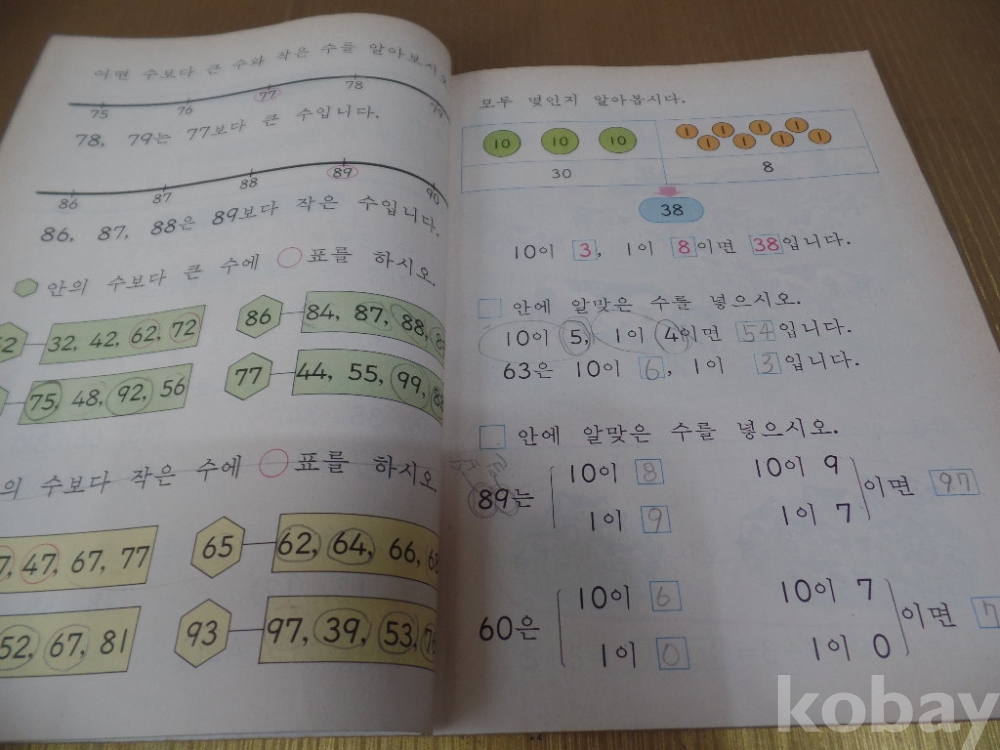 어떤 수보다 큰 수와 작은 수를 알아보시오
75 76 77 78 79
78, 79는 77보다 큰 수입니다.
86 87 88 89 90
86, 87, 88은 89보다 작은 수입니다.
안의 수보다 큰 수에 ○표를 하시오.
32, 42, 62, 72
86 84, 87, 88,
75, 48, 92, 56
77 44, 55, 99,
의 수보다 작은 수에 ○표를 하시오
47, 67, 77
65 62, 64, 66,
52, 67, 81
93 97, 39, 53,
모두 몇인지 알아봅시다.
10 10 10 1 1 1 1 1 1 1 1
30 8
38
10이 3, 1이 8이면 38입니다.
□ 안에 알맞은 수를 넣으시오.
10이 5, 1이 4이면 54입니다.
63은 10이 6, 1이 3입니다.
□ 안에 알맞은 수를 넣으시오.
89는 10이 8 1이 9
10이 9 1이 7 이면 97
60은 10이 6 1이 0
10이 7 1이 0 이면 7
kobay